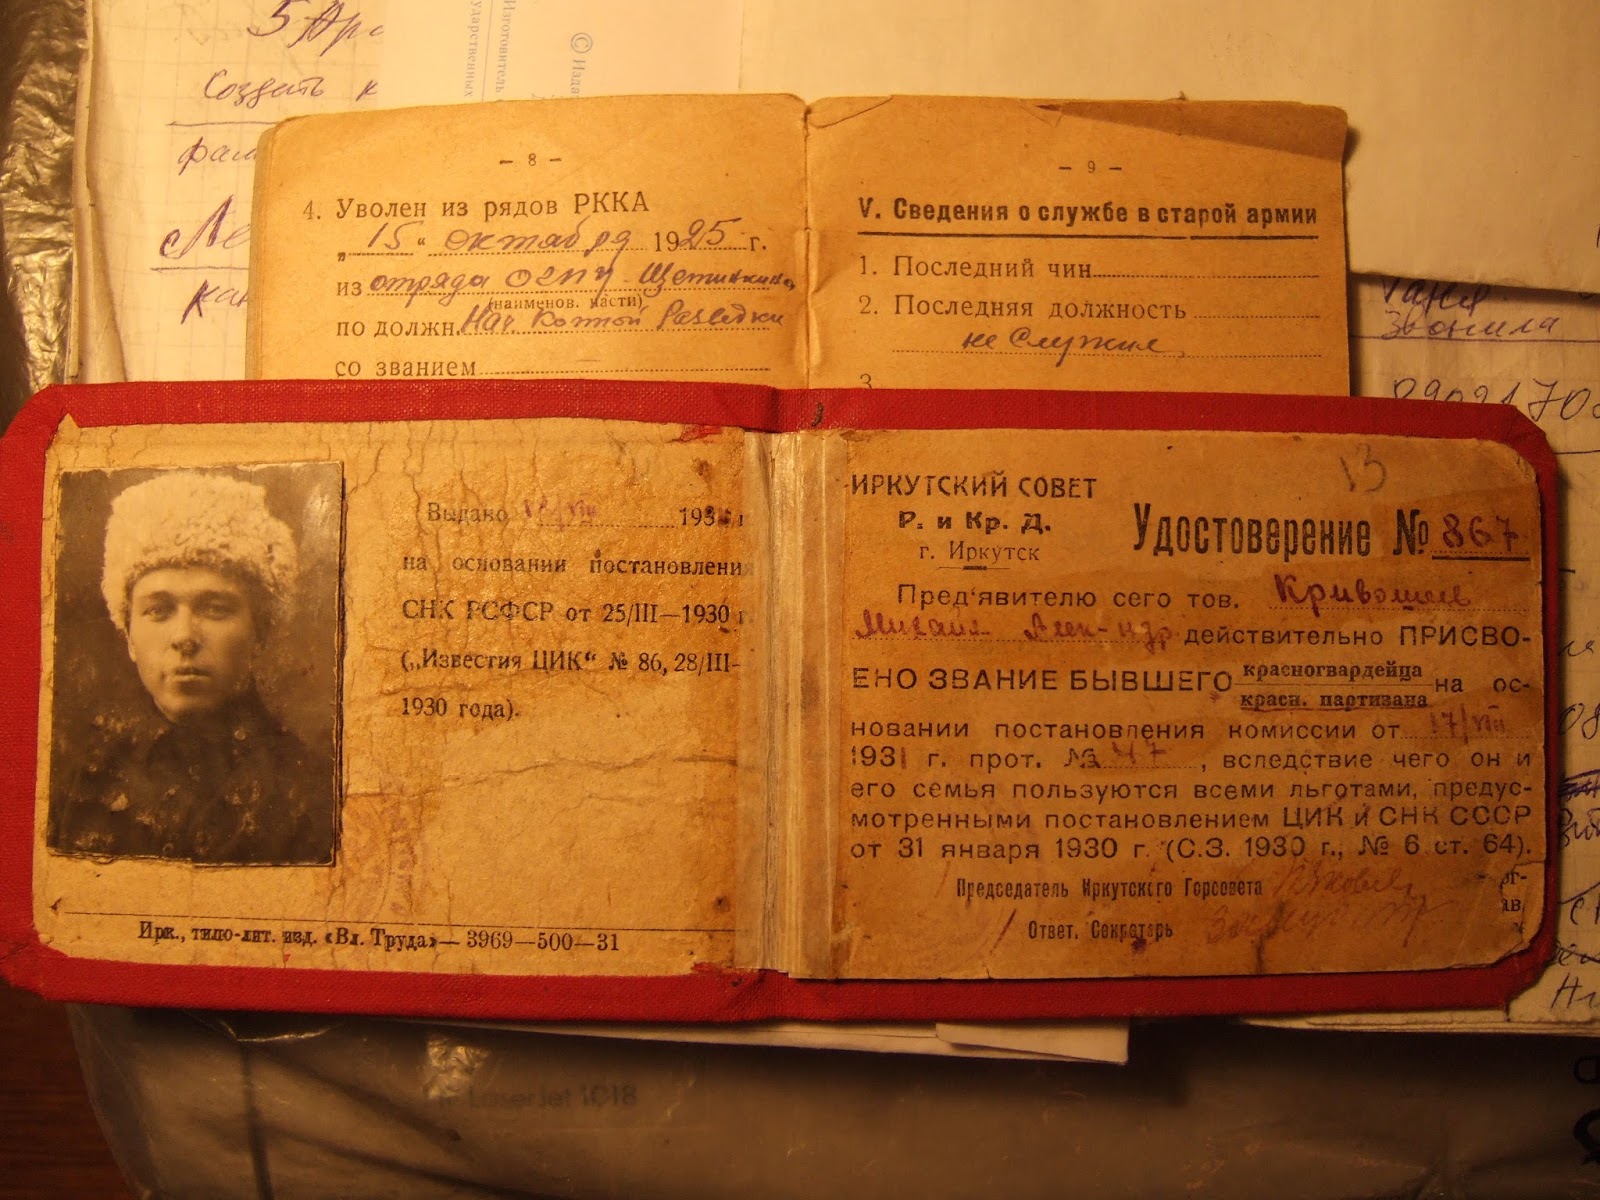 5
создать к
© Изда
Изготовитель
ударственных
- 8 -
4. Уволен из рядов РККА
„15" октября 1925 г.
из отряда ОГПУ Щетинкина
(наименов. части)
по должн. Нач Конной Разведки
со званием
- 9 -
V. Сведения о службе в старой армии
1. Последний чин
2. Последняя должность
не служил
3.
Таня
Звонила
Выдано /VIII 193 г
на основании постановления
СНК РСФСР от 25/III—1930 г.
(„Известия ЦИК" № 86, 28/III-
1930 года).
Ирк., типо-лит. изд. «Вл. Труда»— 3969—500—31
13
ИРКУТСКИЙ СОВЕТ
Р. и Кр. Д.
г. Иркутск
Удостоверение № 867
Пред'явителю сего тов. Кривошеев
Михаил Алек-андр действительно ПРИСВО-
ЕНО ЗВАНИЕ БЫВШЕГО красногвардейца
красн. партизана на ос-
новании постановления комиссии от 17/VIII
1931 г. прот. № 47, вследствие чего он и
его семья пользуются всеми льготами, предус-
мотренными постановлением ЦИК и СНК СССР
от 31 января 1930 г. (С.З. 1930 г., № 6 ст. 64).
Председатель Иркутского Горсовета
Ответ. Секретарь
LaserJet 1018